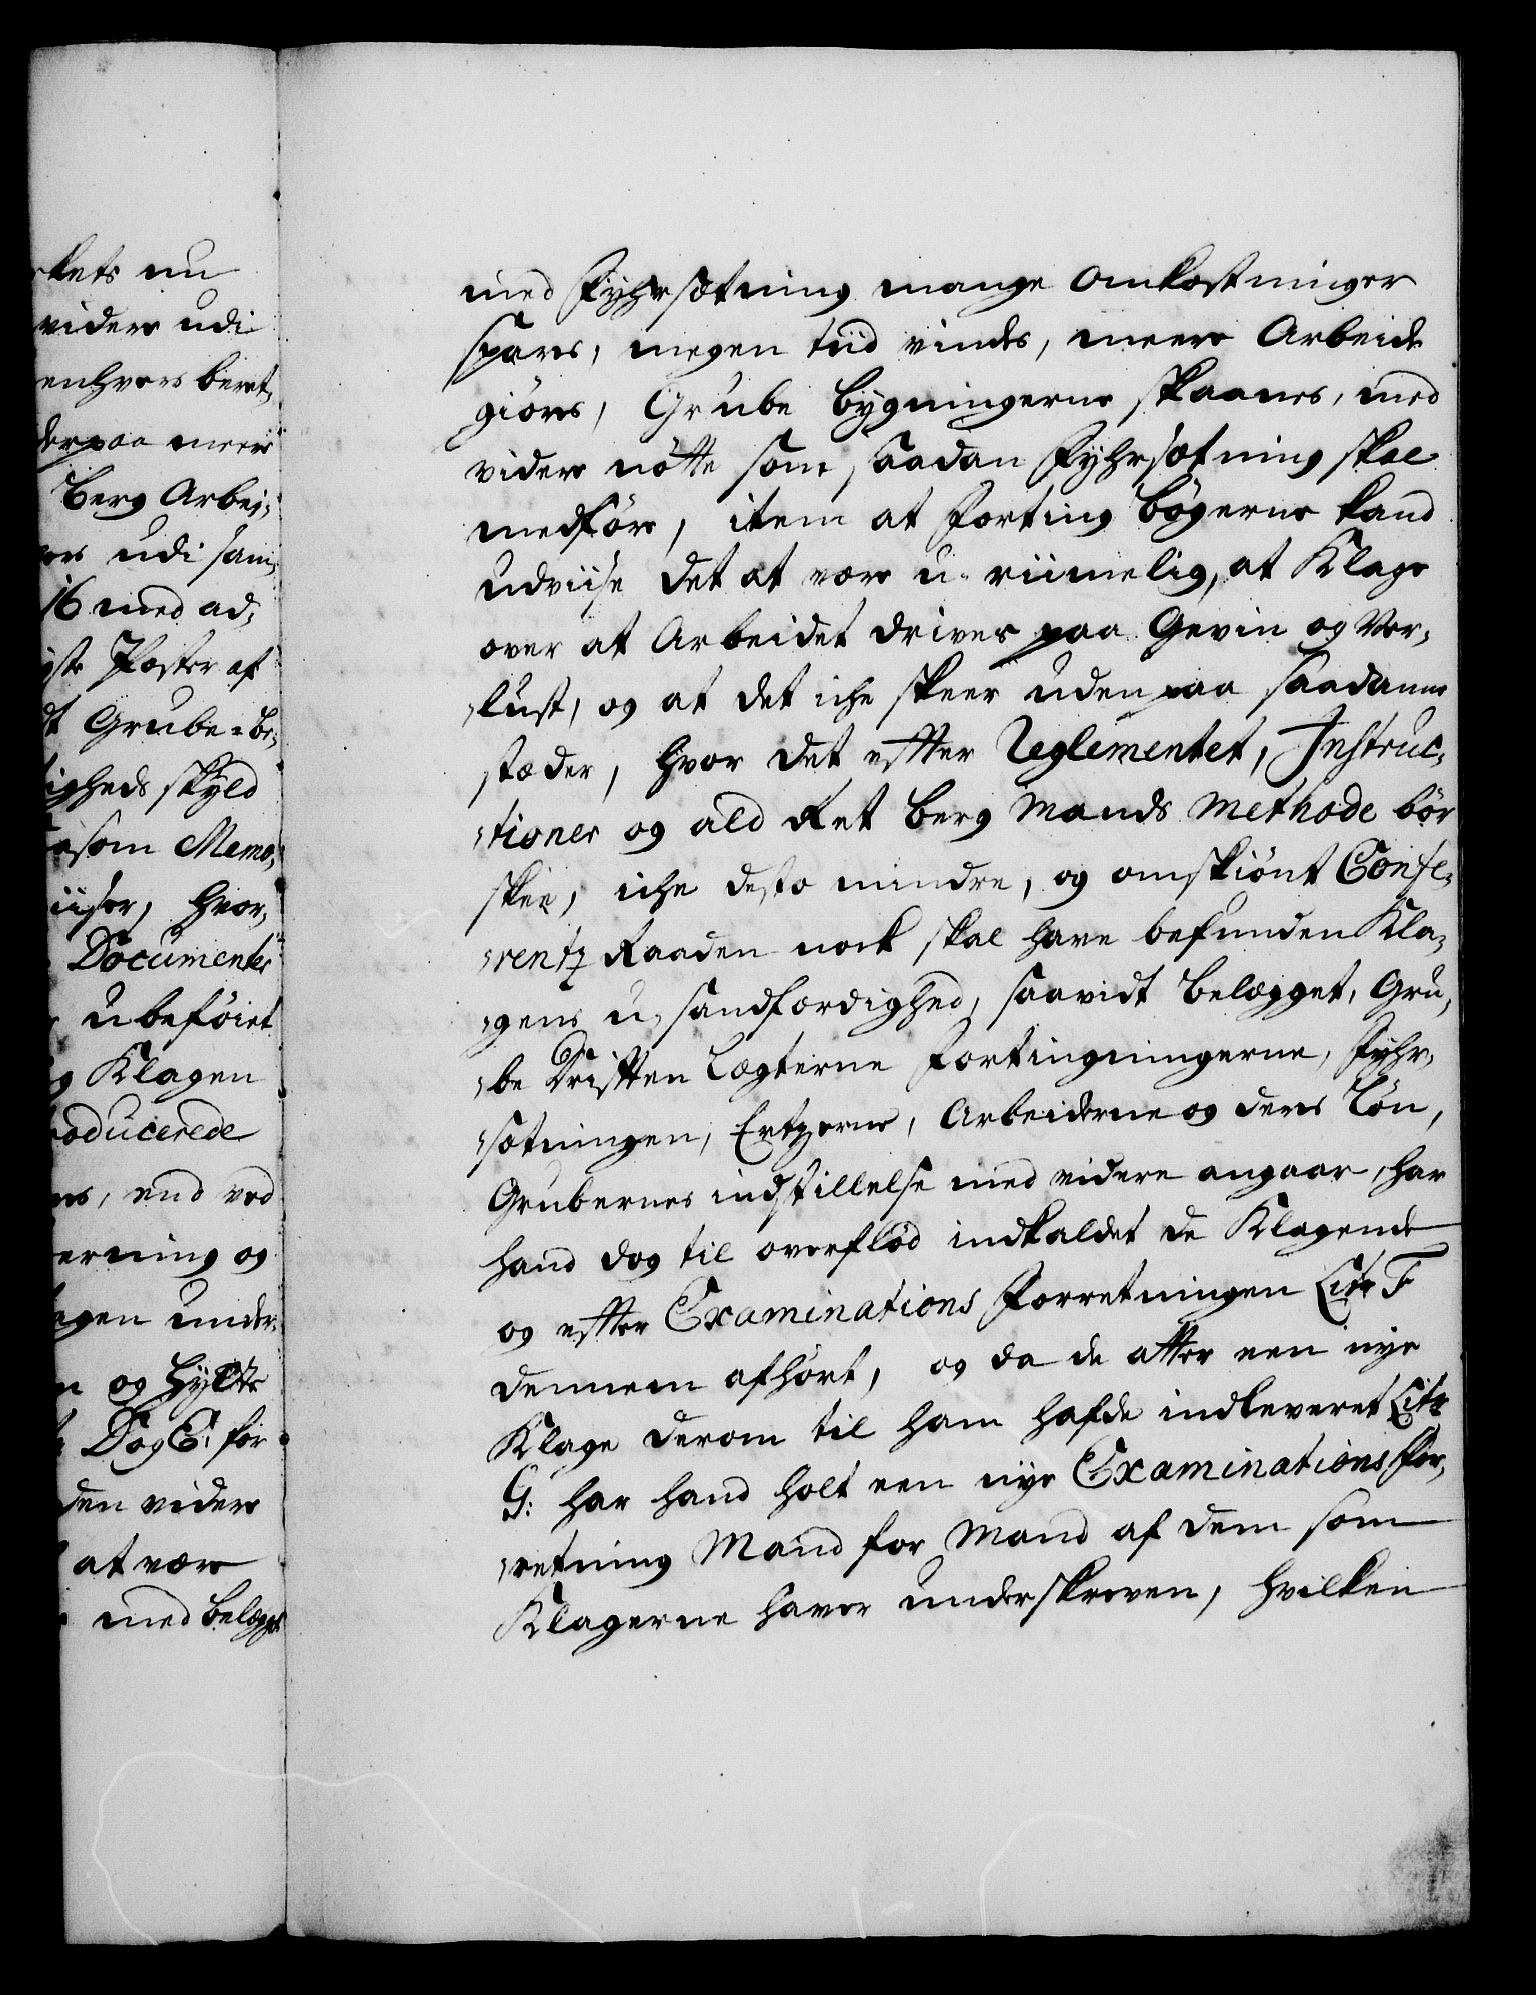 rkets nu
videre udi
enhvers beret,
derpaa meere
Berg Arbei,
udi sam,
16 med ad,
Poster af
Grube-be,
igheds skyld
som Memo,
iiser, hvor,
Documenter
ubeføiet
Klagen
oducerede
, end ved
erning og
egen under,
og Hylte
D og E: for
den videre
at være
med Belægget
med Fyhrsætning mange omkostninger
spares, megen tiid vindes, meere Arbeide
giøres, Grube bygningerne skaanes, med
videre nøtte som saadan Fyhrsætning skal
medføre, item at Forting bøgerne kand
udviise det at være u-riimelig, at Klage
over at Arbeidet drives paa Gevin og Ver,
,lust, og at det iche skeer uden paa saadanne
stæder, hvor det efter Reglementet, Instruc,
,tioner og ald Ret Berg Mands Methode bør
skee, iche desto mindre, og omskiønt Confe,
,rentz Raaden nock skal have befunden Kla,
,gens u-sandfærdighed, saavidt Belægget, Gru,
,be Driften Lægterne Fortingningerne, Fyhr,
,sætningen, Ertzerne, Arbeiderne og deres Løn,
Grubernes indstillelse med videre angaar, har
hand dog til overflød indkaldet de Klagende
og efter Examinations Forretningen Litr F
dennem afhørt, og da de atter een nye
Klage derom til ham hafde indleveret Litr
G: har hand holt een nye Examinations For,
,retning Mand for Mand af dem som
Klagerne haver underskreven, hvilken